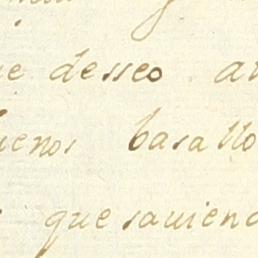 e desseo a
uenos basallo
que sauiend